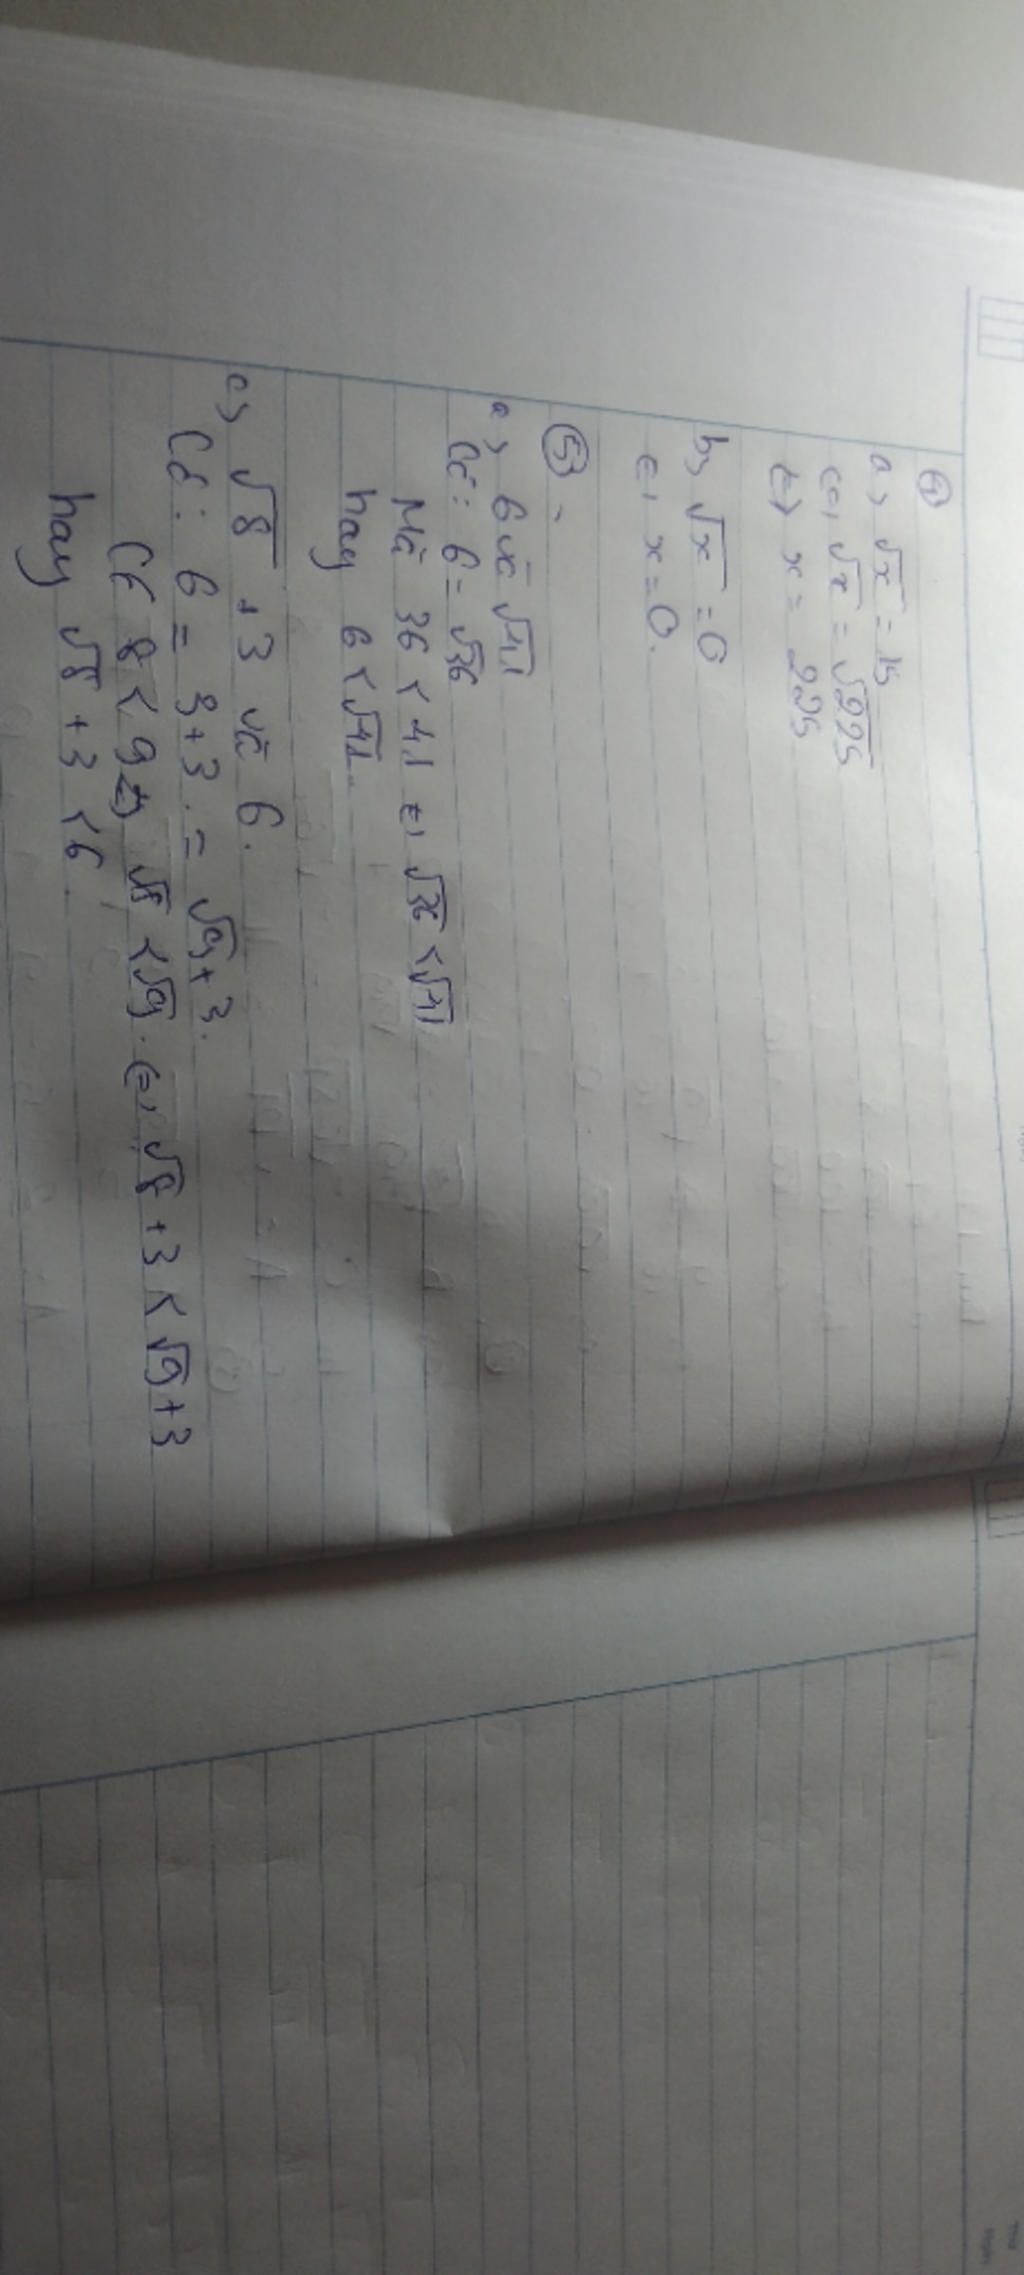 ④
a, √x = 15
<=> √x = √225
<=> x = 225
b, √x = 0
<=> x = 0.
⑤
a, 6 và √41
Có: 6 = √36
Mà 36 < 41 <=> √36 < √41
hay 6 < √41.
c, √8 + 3 và 6.
Có: 6 = 3+3. = √9+3.
Có 8 < 9 <=> √8 < √9. <=> √8 + 3 < √9+3
hay √8 + 3 < 6.